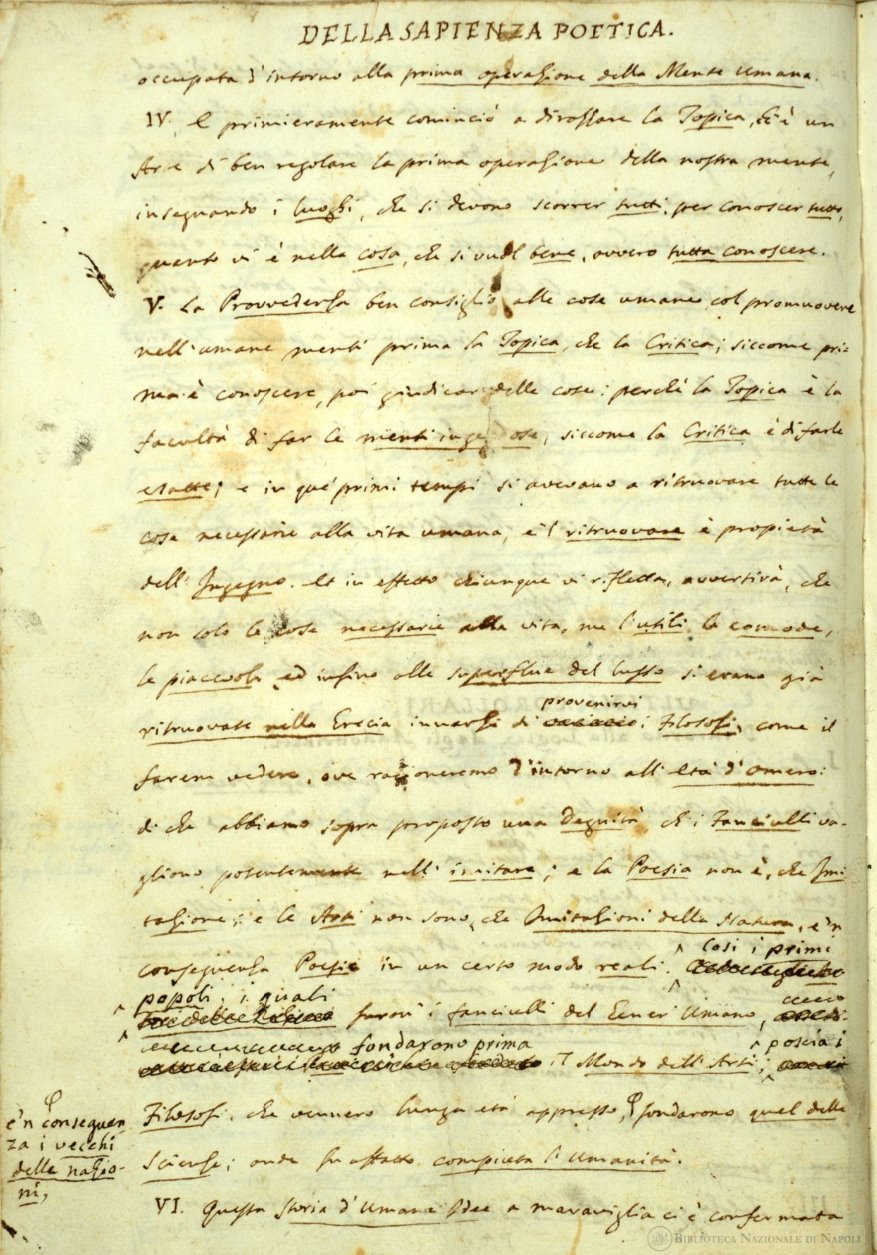 DELLA SAPIENZA POETICA.
occupata d'intorno alla prima operazione della Mente Umana.
IV. E primieramente cominciò a dirozzare la Topica, ch'è un
Arte di ben regolare la prima operazione della nostra mente,
insegnando i luoghi, che si devono scorrer tutti, per conoscer tutto,
quanto vi è nella cosa, che si vuol bene, ovvero tutta conoscere.
V. La Provvedenza ben consigliò alle cose umane, col promuovere
nell'umane menti prima la Topica, che la Critica; siccome pri-
ma è conoscere, poi giudicar delle cose: perchè la Topica è la
facultà di far le menti ingegnose, siccome la Critica è di farle
esatte; e in que' primi tempi si avevano a ritruovare tutte le
cose necessarie alla vita umana, e 'l ritruovare è propietà
dell'Ingegno. Et in effetto chiunque vi rifletta, avvertirà, che
non solo le cose necessarie alla vita, ma l'utili, le comode,
le piacevoli, ed infino alle superflue del lusso si erano già
ritruovate nella Grecia innanzi di provenirvi i Filosofi, come il
farem vedere, ove ragioneremo d'intorno all'Età d'Omero:
di che abbiamo sopra proposto una Degnità, ch'i Fanciulli va-
gliono potentemente nell'imitare; e la Poesia non è, che Imi-
tazione; e le Arti non sono, che Imitazioni della Natura, e 'n
conseguenza Poesie in un certo modo reali. Così i primi
popoli, i quali furon' i fanciulli del Gener' Umano,
fondarono prima il Mondo dell'Arti; poscia i
Filosofi, che vennero lunga età appresso, fondarono quel delle
e 'n conseguen
za i vecchi
delle nazio-
ni,
Scienze; onde fu affatto compiuta l'Umanità.
VI. Questa Storia d'Umane Idee a maraviglia ci è confermata
BIBLIOTECA NAZIONALE DI NAPOLI